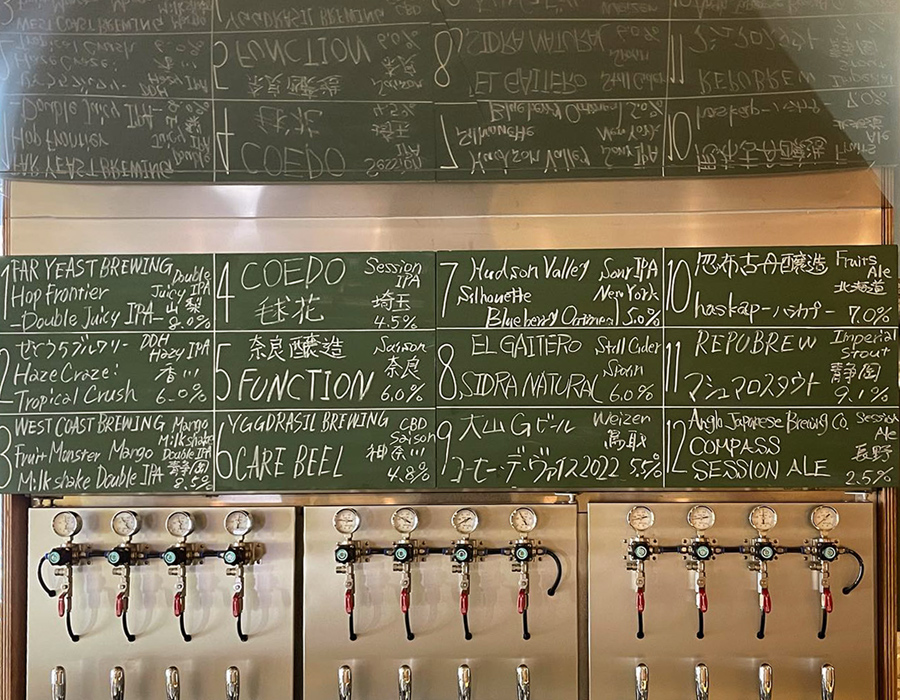 1
FAR YEAST BREWING
Double
Juicy IPA
Hop Frontier
山梨
-Double Juicy IPA-
8.0%
2
せとうちブルワリー
DDH
Hazy IPA
Haze Craze:
香川
Tropical Crush
6.0%
3
WEST COAST BREWING
Mango
Milkshake
Double IPA
Fruit Monster Mango
静岡
Milkshake Double IPA
8.5%
4
COEDO
Session
IPA
毬花
埼玉
4.5%
5
奈良醸造
Saison
奈良
FUNCTION
6.0%
6
YGGDRASIL BREWING
CBD
Saison
神奈川
CARE BEEL
4.8%
7
Hudson Valley
Sour IPA
Silhouette
New York
Blueberry Oatmeal
5.0%
8
EL GAITERO
Still Cider
Spain
SIDRA NATURAL
6.0%
9
大山Gビール
Weizen
鳥取
コーヒー・デ・ヴァイス2022
5.5%
10
忽布古丹醸造
Fruits
Ale
北海道
haskap-ハスカップ-
7.0%
11
REPUBREW
Imperial
Stout
静岡
マシュマロスタウト
9.1%
12
Anglo Japanese Brewing Co.
Session
Ale
COMPASS
長野
SESSION ALE
2.5%